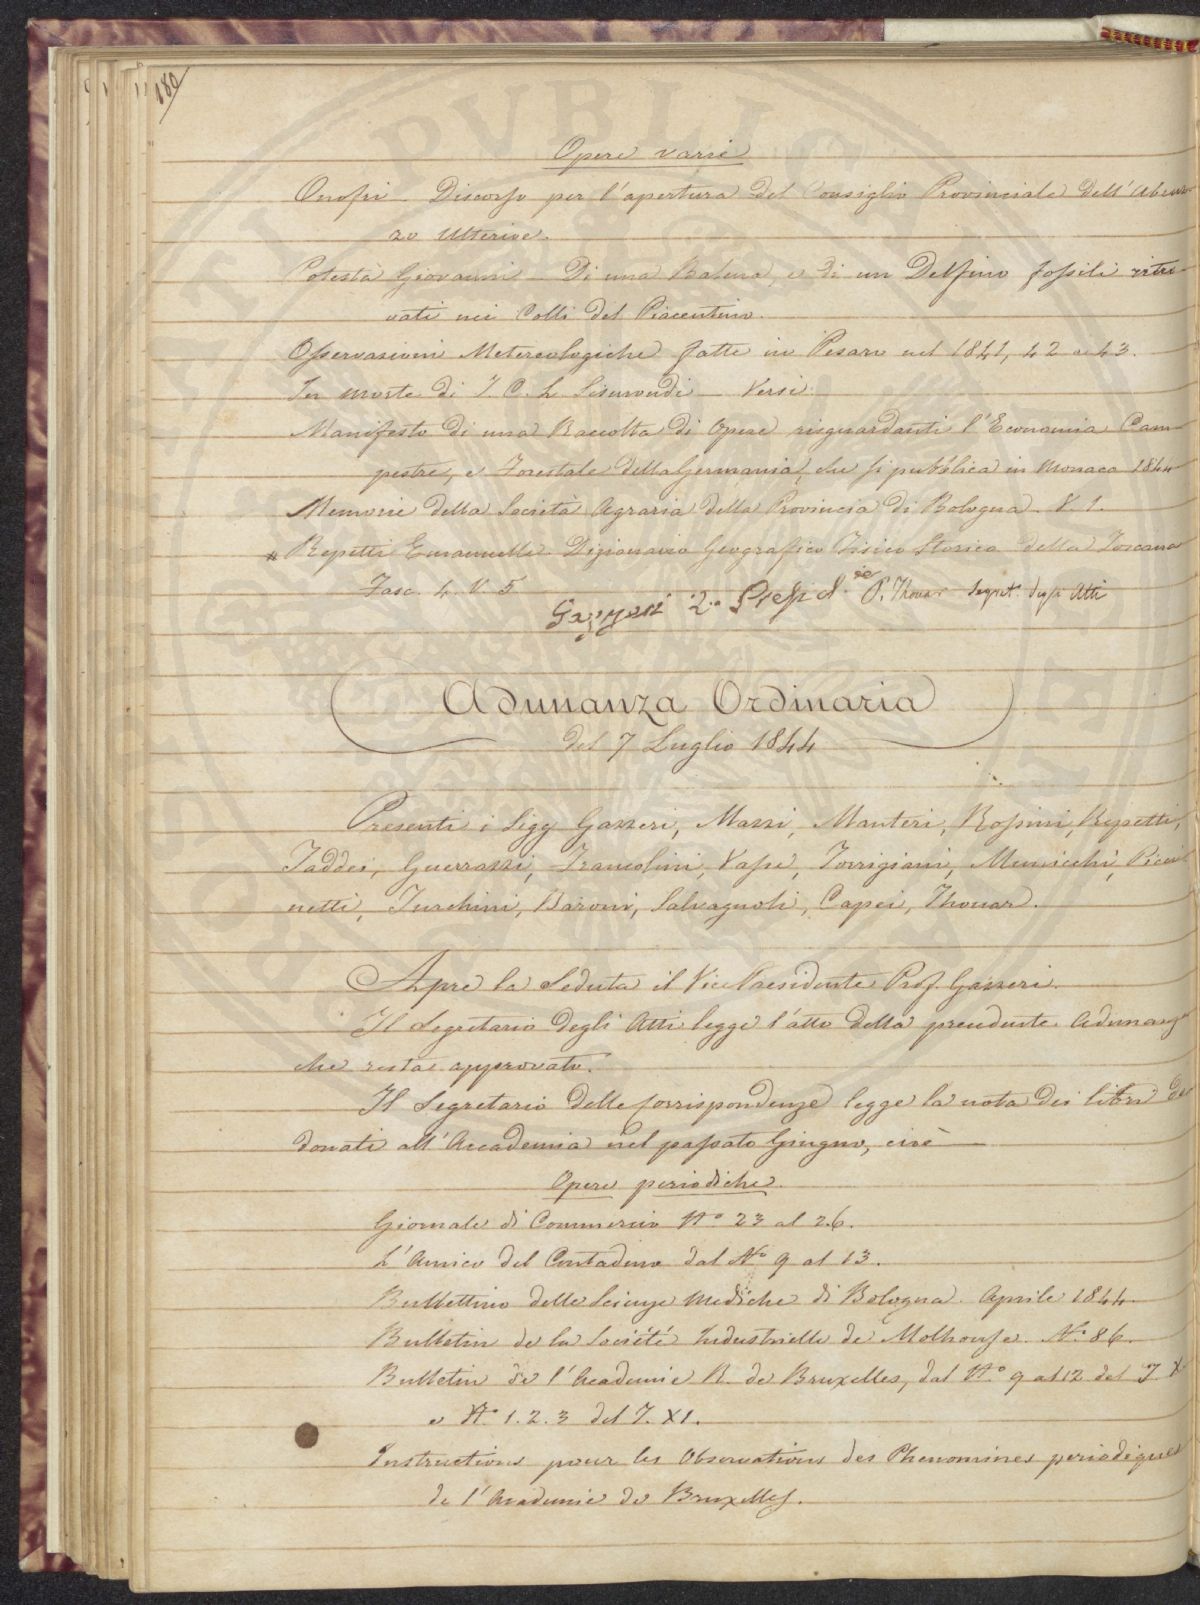 180
Opere varie
Onofri. Discorso per l'apertura del Consiglio Provinciale dell'Abruz
zo Ulteriore.
Potestà Giovanni – Di una Balena, e di un Delfino fossili ritro
vati nei Colli del Piacentino.
Osservazioni Metereologiche fatte in Pesaro nel 1841, 42 e 43.
In morte di J. C. L. Sismondi – Versi.
Manifesto di una Raccolta di Opere risguardanti l'Economia Cam
pestre, e Forestale della Germania, che si pubblica in Monaco 1844
Memorie della Società Agraria della Provincia di Bologna. V. 1.
Repetti Emanuelle. Dizionario Geografico Fisico Storico della Toscana
Fasc. 4. V. 5
Gazzeri 2.o Presid.te P. Thouar Segret. degli Atti
Adunanza Ordinaria
del 7 Luglio 1844
Presenti i Sigg Gazzeri, Mazzi, Manteri, Rossini, Repetti,
Taddei, Guerrazzi, Francolini, Vase, Torrigiani, Municchi, Picci
netti, Turchini, Baroni, Salvagnoli, Capei, Thouar.
Apre la Seduta il Vice Presidente Prof. Gazzeri.
Il Segretario degli Atti legge l'atto della precedente Adunanza
che resta approvato.
Il Segretario delle Corrispondenze legge la nota dei libri
donati all'Accademia nel passato Giugno, cioè —
Opere periodiche.
Giornale di Commercio N° 23 al 26.
L'Amico del Contadino dal N° 9 al 13.
Bullettino delle Scienze Mediche di Bologna. Aprile 1844.
Bulletin de la Société Industrielle de Molhouse. N° 86.
Bulletin de l'Academie R. de Bruxelles, dal N° 9 al 12 del T. X
e N° 1. 2. 3 del T. XI.
Instructions pour les Observations des Phenomines periodiques
de l'Academie de Bruxelles.